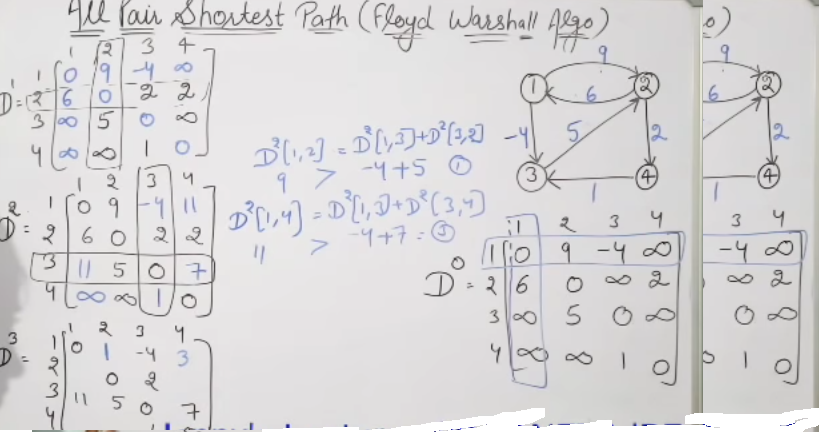 All Pair Shortest Path (Floyd Warshall Algo)
1 2 3 4
1 0 9 -4 ∞
D¹= 2 6 0 2 2
3 ∞ 5 0 ∞
4 ∞ ∞ 1 0
1 2 3 4
1 0 9 -4 11
D²= 2 6 0 2 2
3 11 5 0 7
4 ∞ ∞ 1 0
1 2 3 4
D³= 1 0 1 -4 3
2 0 2
3 11 5 0 7
4
D²[1,2] = D²[1,3]+D²[3,2]
9 > -4+5 1
D²[1,4] = D²[1,3]+D²(3,4]
11 > -4+7 = 3
9
1 2
6
-4 5 2
3 4
1
1 2 3 4
1 0 9 -4 ∞
D⁰= 2 6 0 ∞ 2
3 ∞ 5 0 ∞
4 ∞ ∞ 1 0
o)
9
2
6
2
4
1
3 4
-4 ∞
∞ 2
0 ∞
1 0